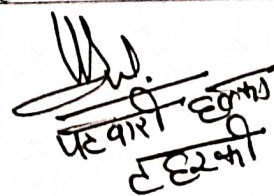 पटवारी हल्का
टहरकी